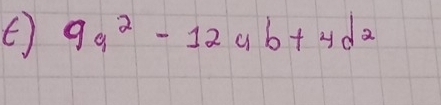 t) 9a² - 12ab + 4d²